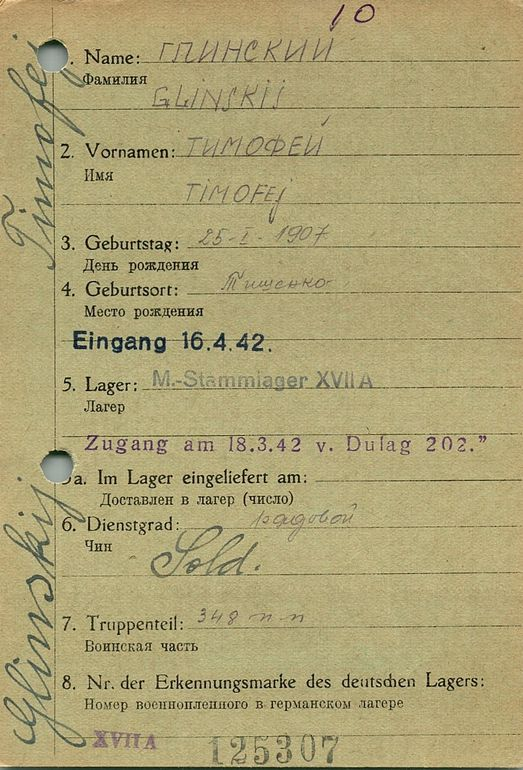 10
1. Name: ГЛИНСКИЙ
Фамилия
GLINSKIJ
2. Vornamen: ТИМОФЕЙ
Имя
TIMOFEJ
3. Geburtstag: 25-I-1907
День рождения
4. Geburtsort: Тищенко
Место рождения
Eingang 16.4.42.
5. Lager: M.-Stammlager XVII A
Лагерь
Zugang am 18.3.42 v. Dulag 202."
5a. Im Lager eingeliefert am:
Доставлен в лагер (число)
6. Dienstgrad: рядовой
Чин
Sold.
7. Truppenteil: 348 п-п
Воинская часть
8. Nr. der Erkennungsmarke des deutschen Lagers:
Номер военнопленного в германском лагере
XVII A 125307
Glinskij Timofej